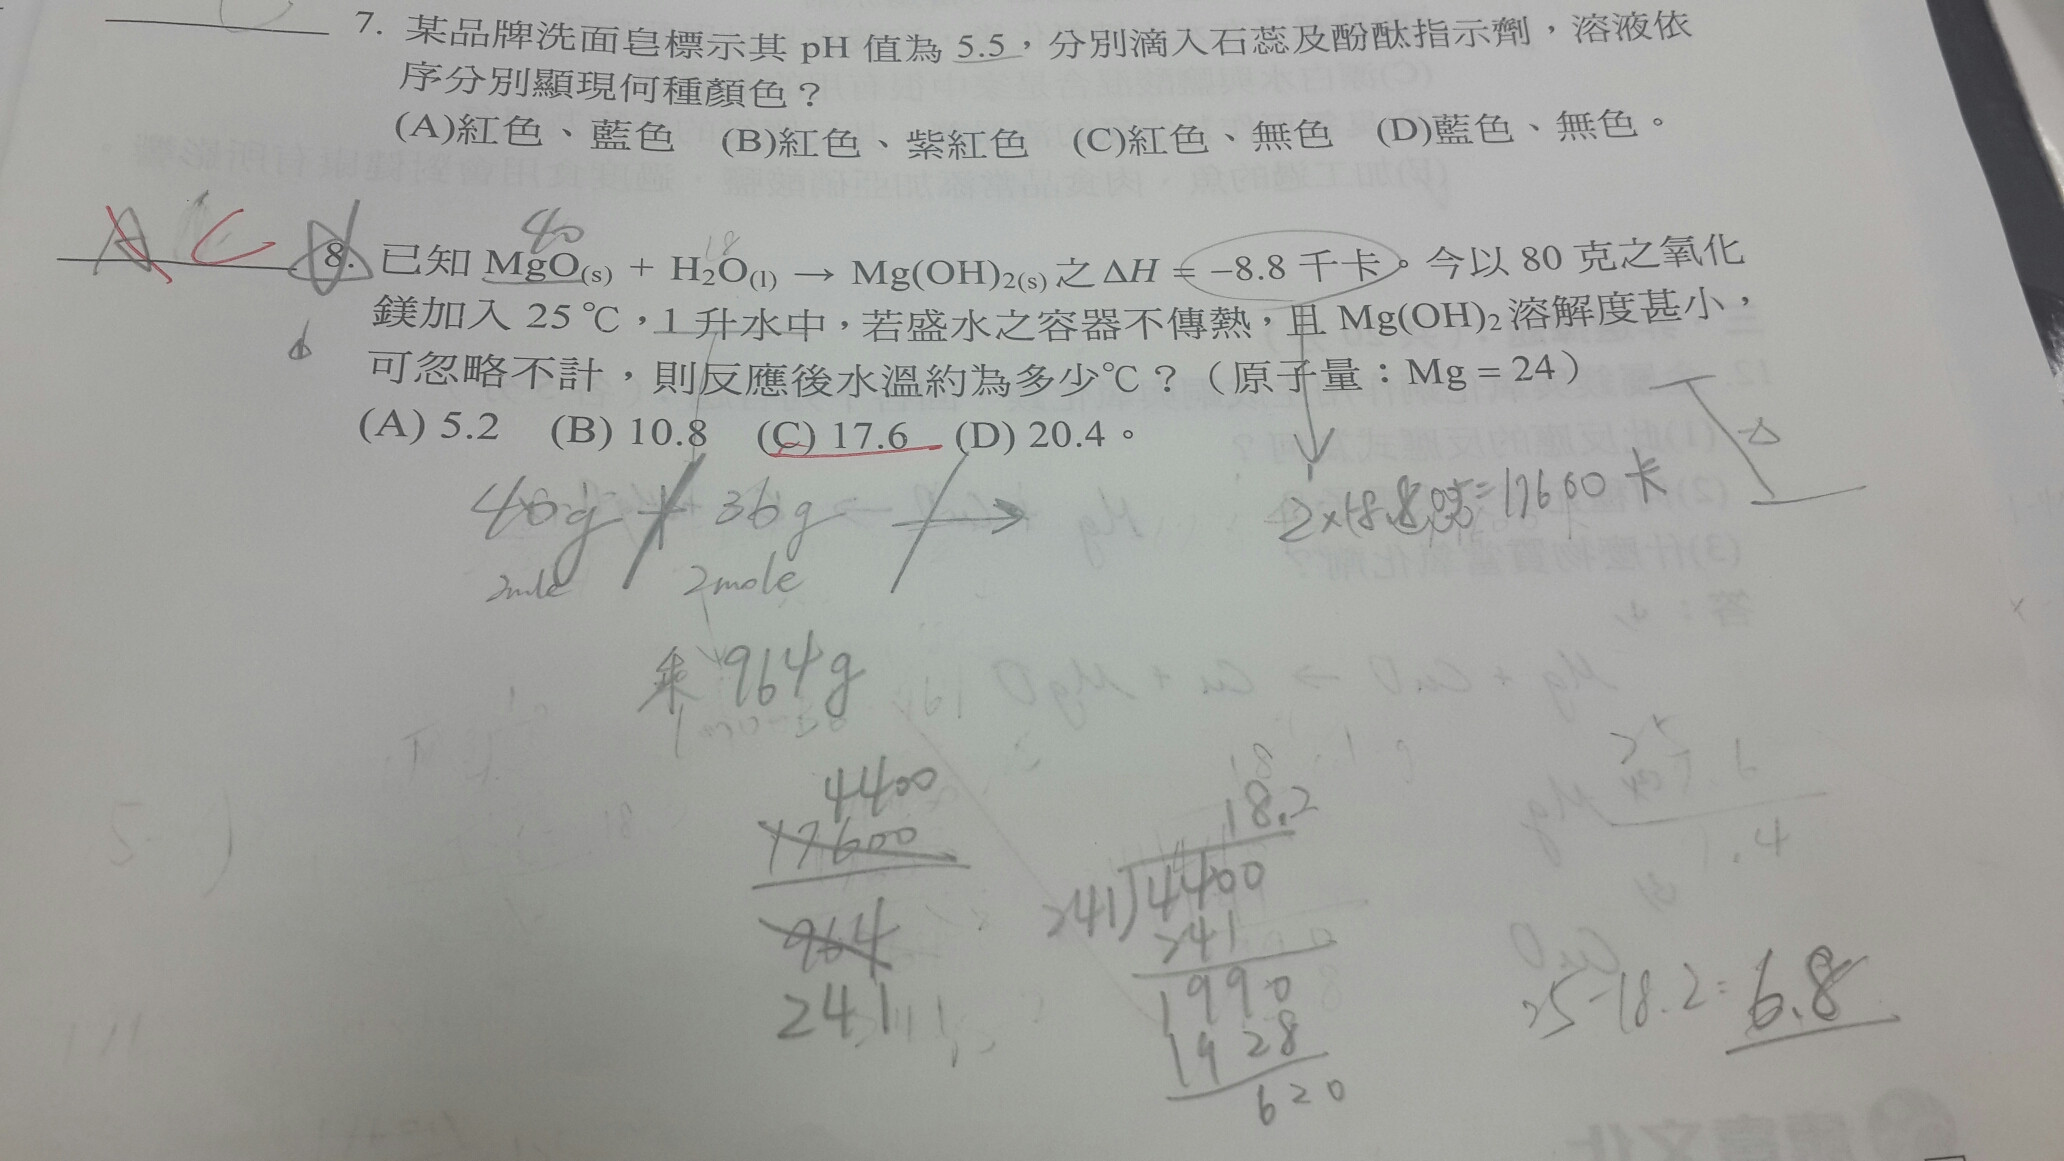 7. 某品牌洗面皂標示其 pH 值為 5.5，分別滴入石蕊及酚酞指示劑，溶液依
序分別顯現何種顏色？
(A)紅色、藍色 (B)紅色、紫紅色 (C)紅色、無色 (D)藍色、無色。
A C
40
18
8. 已知 MgO(s) + H₂O(l) → Mg(OH)₂(s) 之 ΔH = −8.8 千卡。今以 80 克之氧化
鎂加入 25 ℃，1 升水中，若盛水之容器不傳熱，且 Mg(OH)₂ 溶解度甚小，
可忽略不計，則反應後水溫約為多少℃？（原子量：Mg = 24）
(A) 5.2 (B) 10.8 (C) 17.6 (D) 20.4。
36g
2mole 2mole
=17600 卡
964g
4400
17600
964
241
18.2
241)4400
241
1990
1928
620
25-18.2=6.8